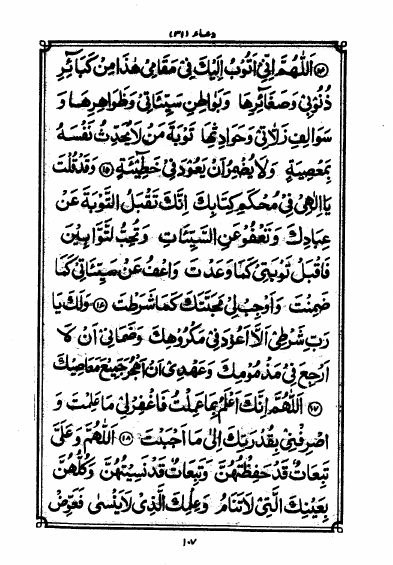 دعاء (۳۱)
۱۴ اَللّٰهُمَّ اِنِّيْ اَتُوْبُ اِلَيْكَ فِيْ مَقَامِيْ هٰذَا مِنْ كَبَآئِرِ
ذُنُوْبِيْ وَصَغَآئِرِهَا وَبَوَاطِنِ سَيِّئَاتِيْ وَظَوَاهِرِهَا وَ
سَوَالِفِ زَلَّاتِيْ وَحَوَادِثِهَا تَوْبَةَ مَنْ لَا يُحَدِّثُ نَفْسَهُ
بِمَعْصِيَةٍ وَلَا يُضْمِرُ اَنْ يَعُوْدَ فِيْ خَطِيْٓئَةٍ ۱۵ وَقَدْ قُلْتَ
يَا اِلٰهِيْ فِيْ مُحْكَمِ كِتَابِكَ اِنَّكَ تَقْبَلُ التَّوْبَةَ عَنْ
عِبَادِكَ وَتَعْفُوْ عَنِ السَّيِّئَاتِ وَتُحِبُّ التَّوَّابِيْنَ
فَاقْبَلْ تَوْبَتِيْ كَمَا وَعَدْتَ وَاعْفُ عَنْ سَيِّئَاتِيْ كَمَا
ضَمِنْتَ وَاَوْجِبْ لِيْ مَحَبَّتَكَ كَمَا شَرَطْتَ ۱۶ وَلَكَ يَا
رَبِّ شَرْطِيْ اَلَّا اَعُوْدَ فِيْ مَكْرُوْهِكَ وَضَمَانِيْ اَنْ لَا
اَرْجِعَ فِيْ مَذْمُوْمِكَ وَعَهْدِيْ اَنْ اَهْجُرَ جَمِيْعَ مَعَاصِيْكَ
۱۷ اَللّٰهُمَّ اِنَّكَ اَعْلَمُ بِمَا عَمِلْتُ فَاغْفِرْ لِيْ مَا عَلِمْتَ وَ
اصْرِفْنِيْ بِقُدْرَتِكَ اِلٰى مَا اَحْبَبْتَ ۱۸ اَللّٰهُمَّ وَعَلَيَّ
تَبِعَاتٌ قَدْ حَفِظْتُهُنَّ وَتَبِعَاتٌ قَدْ نَسِيْتُهُنَّ وَكُلُّهُنَّ
بِعَيْنِكَ الَّتِيْ لَا تَنَامُ وَعِلْمِكَ الَّذِيْ لَا يَنْسٰى فَعَوِّضْ
۱۰۷